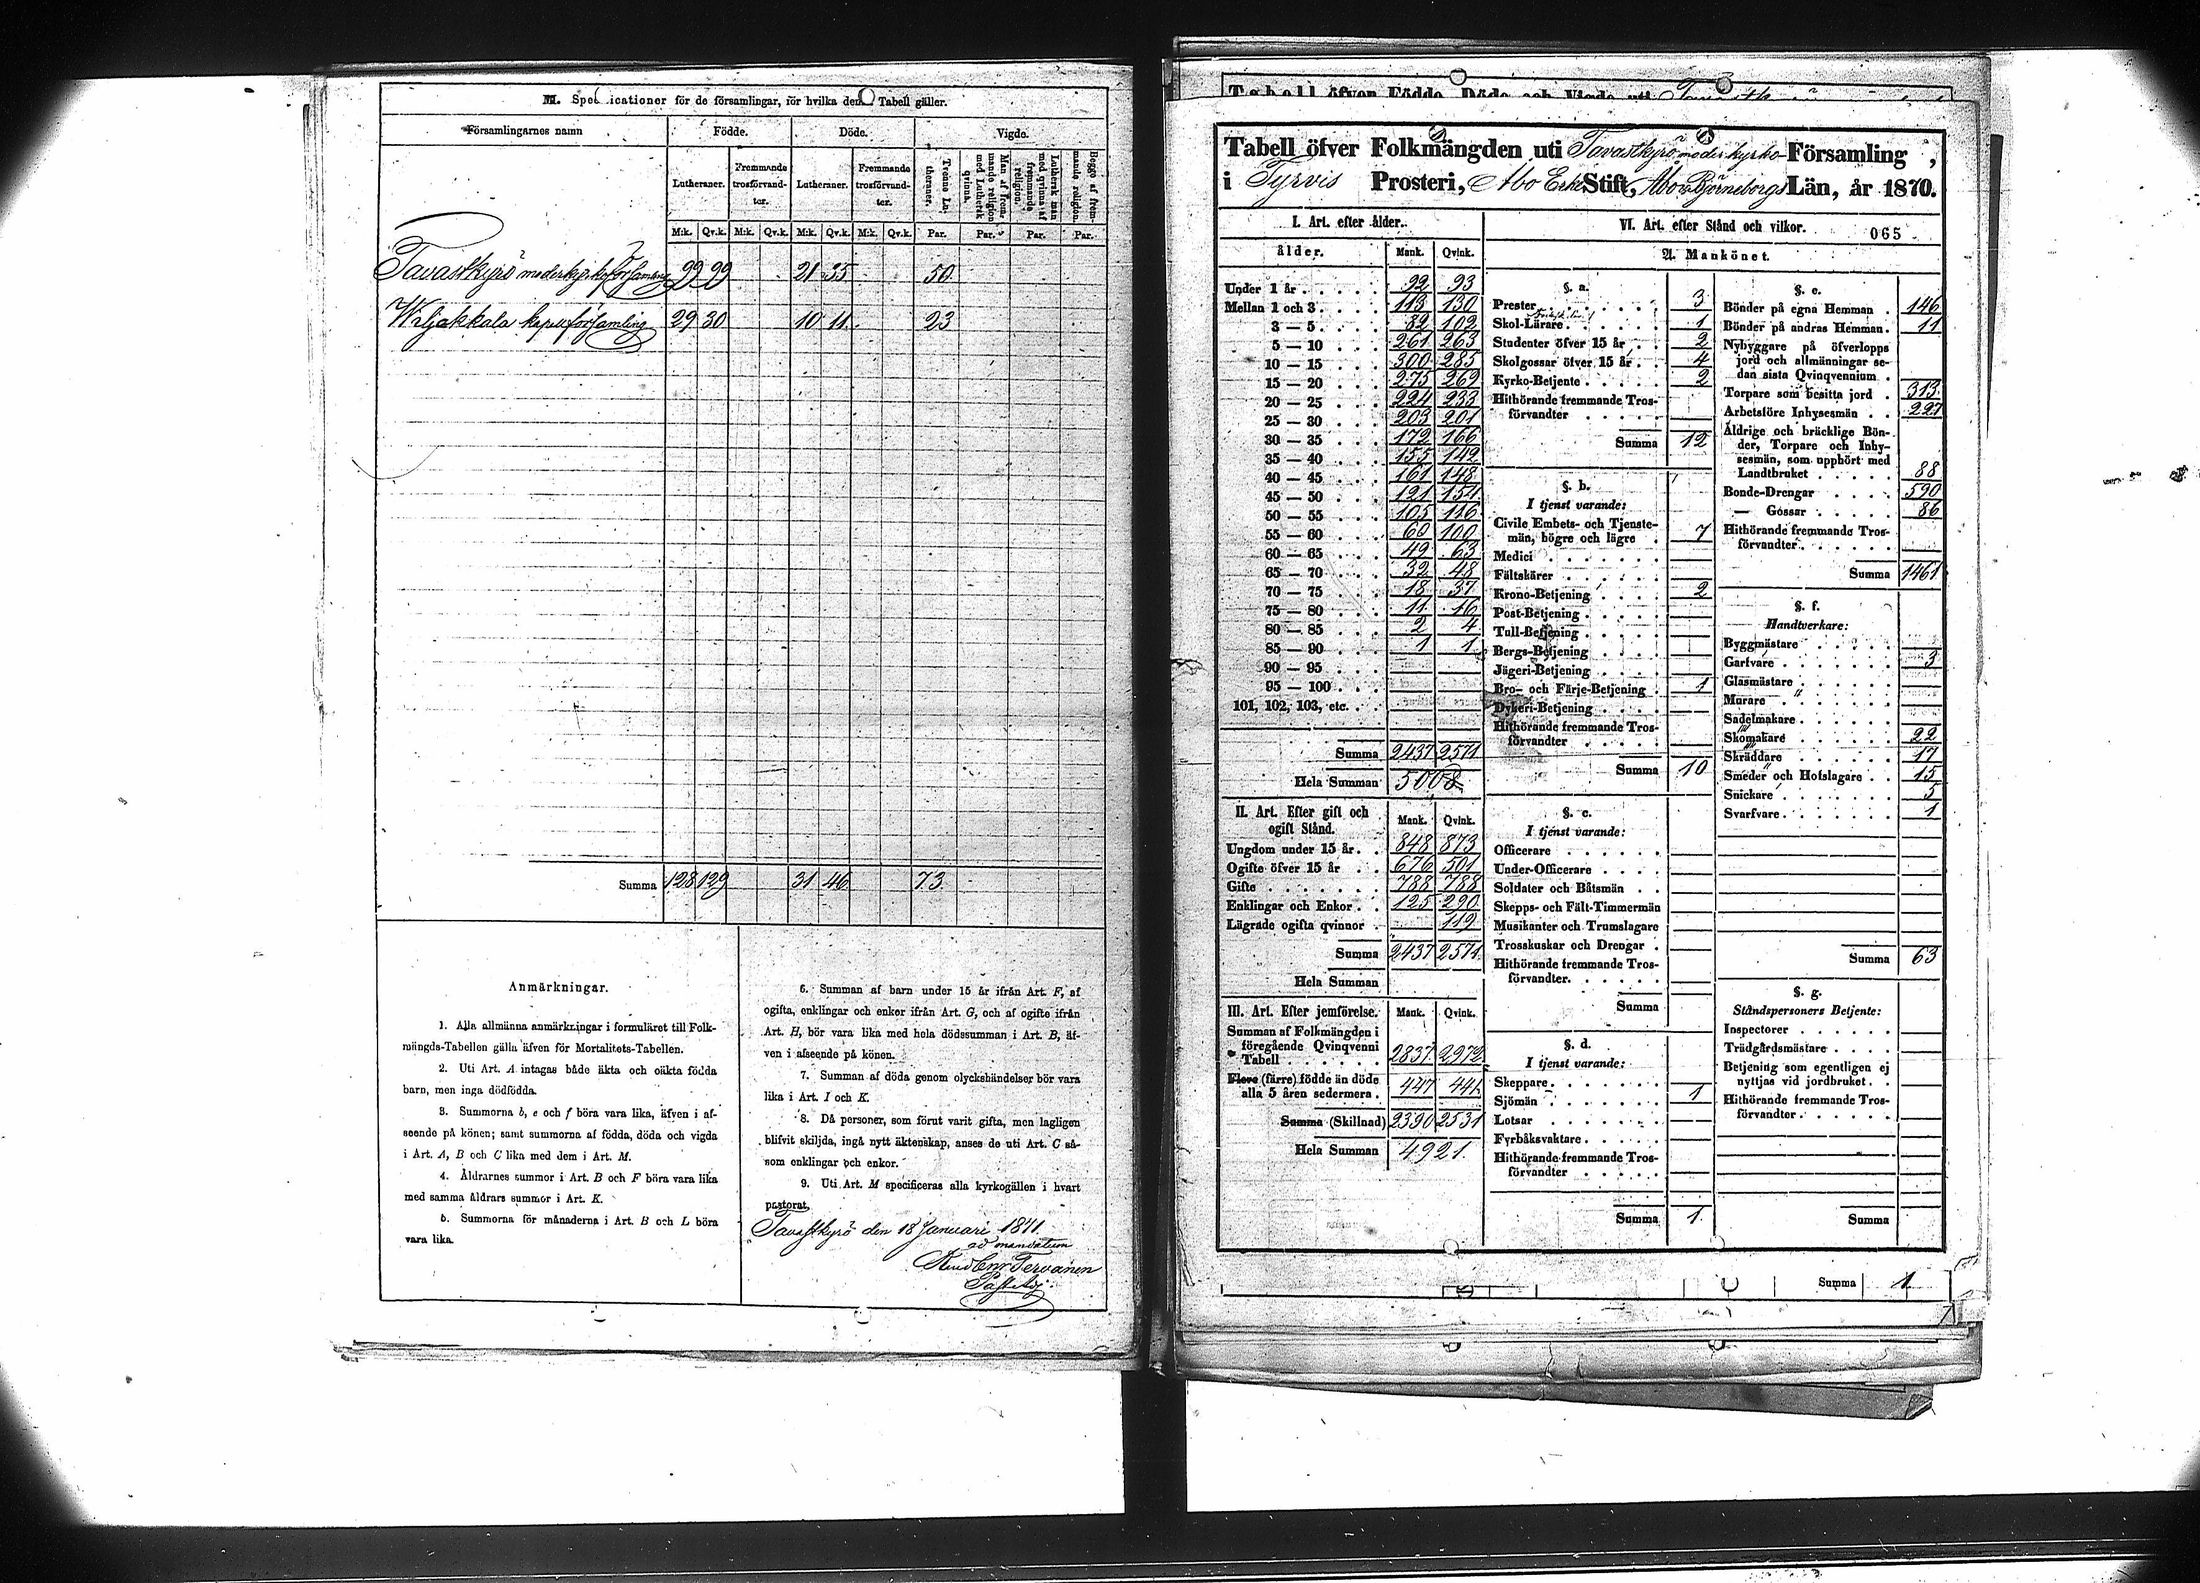 M. Specificationer för de församlingar, för hvilka denna Tabell gäller.
Församlingarnes namn
Födde.
Döde.
Vigde.
Lutheraner.
Fremmande trosförvandter.
Lutheraner.
Fremmande trosförvandter.
Trenne Lutheraner.
Man af fremmande religion med Luthersk qvinna.
Luthersk man med qvinna af fremmande religion.
Begge af fremmande religion.
M:k. Qv.k. M:k. Qv.k. M:k. Qv.k. M:k. Qv.k. Par. Par. Par. Par.
Tavastkyrö moderkyrkoförsamling 99 99 21 35 50.
Wiljakkala kapellförsamling 29 30 10 11 23
Summa 128 129 31 46 73.
Anmärkningar.
1. Alla allmänna anmärkningar i formuläret till Folk-
mängds-Tabellen gälla äfven för Mortalitets-Tabellen.
2. Uti Art. A intagas både äkta och oäkta födda
barn, men inga dödfödda.
3. Summorna b, e och f böra vara lika, äfven i af-
seende på könen; samt summorna af födda, döda och vigda
i Art. A, B och C lika med dem i Art. M.
4. Åldrarnes summor i Art. B och F böra vara lika
med samma åldrars summor i Art. K.
5. Summorna för månaderna i Art. B och L böra
vara lika.
6. Summan af barn under 15 år ifrån Art. F, af
ogifta, enklingar och enkor ifrån Art. G, och af ogifte ifrån
Art. H, bör vara lika med hela dödssumman i Art. B, äf-
ven i afseende på könen.
7. Summan af döda genom olyckshändelser bör vara
lika i Art. I och K.
8. Då personer, som förut varit gifta, men lagligen
blifvit skiljda, ingå nytt äktenskap, anses de uti Art. C så-
som enklingar och enkor.
9. Uti Art. M specificeras alla kyrkogällen i hvart
pastorat.
Tavastkyrö den 18 Januari 1871.
ad mandatum
Tervanen
Past. Adj.
Tabell öfver Folkmängden uti Tavastkyrö moderkyrko-Församling,
i Tyrvis Prosteri, Åbo Erke Stift, Åbo o Björneborgs Län, år 1870.
065
I. Art. efter ålder.
ålder. Mank. Qvink.
Under 1 år 92 93
Mellan 1 och 3 113 130
3 — 5 82 102
5 — 10 261 263
10 — 15 300 285
15 — 20 275 269
20 — 25 224 233
25 — 30 203 201
30 — 35 172 166
35 — 40 155 142
40 — 45 161 148
45 — 50 121 154
50 — 55 105 116
55 — 60 60 100
60 — 65 49 63
65 — 70 32 48
70 — 75 18 37
75 — 80 11 16
80 — 85 2 4
85 — 90 1 1
90 — 95
95 — 100
101, 102, 103, etc.
Summa 2437 2571
Hela Summan 5008
II. Art. Efter gift och ogift Stånd. Mank. Qvink.
Ungdom under 15 år 848 873
Ogifte öfver 15 år 676 501
Gifte 788 788
Enklingar och Enkor 125 290
Lägrade ogifta qvinnor 119
Summa 2437 2571
Hela Summan
III. Art. Efter jemförelse. Mank. Qvink.
Summan af Folkmängden i
föregående Qvinqvenni
Tabell 2837 2972
Flere (färre) födde än döde
alla 5 åren sedermera 447 441
Summa (Skillnad) 2390 2531
Hela Summan 4921.
VI. Art. efter Stånd och vilkor.
A. Mankönet.
§. a.
Prester 3
Skol-Lärare 1
Studenter öfver 15 år 2
Skolgossar öfver 15 år 4
Kyrko-Betjente 2
Hithörande fremmande Tros-
förvandter
Summa 12
§. b.
I tjenst varande:
Civile Embets- och Tjenste-
män, högre och lägre 7
Medici
Fältskärer
Krono-Betjening 2
Post-Betjening
Tull-Betjening
Bergs-Betjening
Jägeri-Betjening
Bro- och Färje-Betjening 1
Dykeri-Betjening
Hithörande fremmande Tros-
förvandter
Summa 10
§. c.
I tjenst varande:
Officerare
Under-Officerare
Soldater och Båtsmän
Skepps- och Fält-Timmermän
Musikanter och Trumslagare
Trosskuskar och Drengar
Hithörande fremmande Tros-
förvandter.
Summa
§. d.
I tjenst varande:
Skeppare
Sjömän 1
Lotsar
Fyrbåksvaktare
Hithörande fremmande Tros-
förvandter
Summa 1.
§. e.
Bönder på egna Hemman 146
Bönder på andras Hemman 11
Nybyggare på öfverlopps
jord och allmänningar se-
dan sista Qvinqvennium
Torpare som besitta jord 313
Arbetsföre Inhysesmän 227
Åldrige och bräcklige Bön-
der, Torpare och Inhy-
sesmän, som upphört med
Landtbruket 88
Bonde-Drengar 590
— Gossar 86
Hithörande fremmande Tros-
förvandter
Summa 1461
§. f.
Handtverkare:
Byggmästare
Garfvare 3
Glasmästare
Murare
Sadelmakare
Skomakare 22
Skräddare 17
Smeder och Hofslagare 15
Snickare 5
Svarfvare 1
Summa 63
§. g.
Ståndspersoners Betjente:
Inspectorer
Trädgårdsmästare
Betjening som egentligen ej
nyttjas vid jordbruket
Hithörande fremmande Tros-
förvandter
Summa
Summa 1.